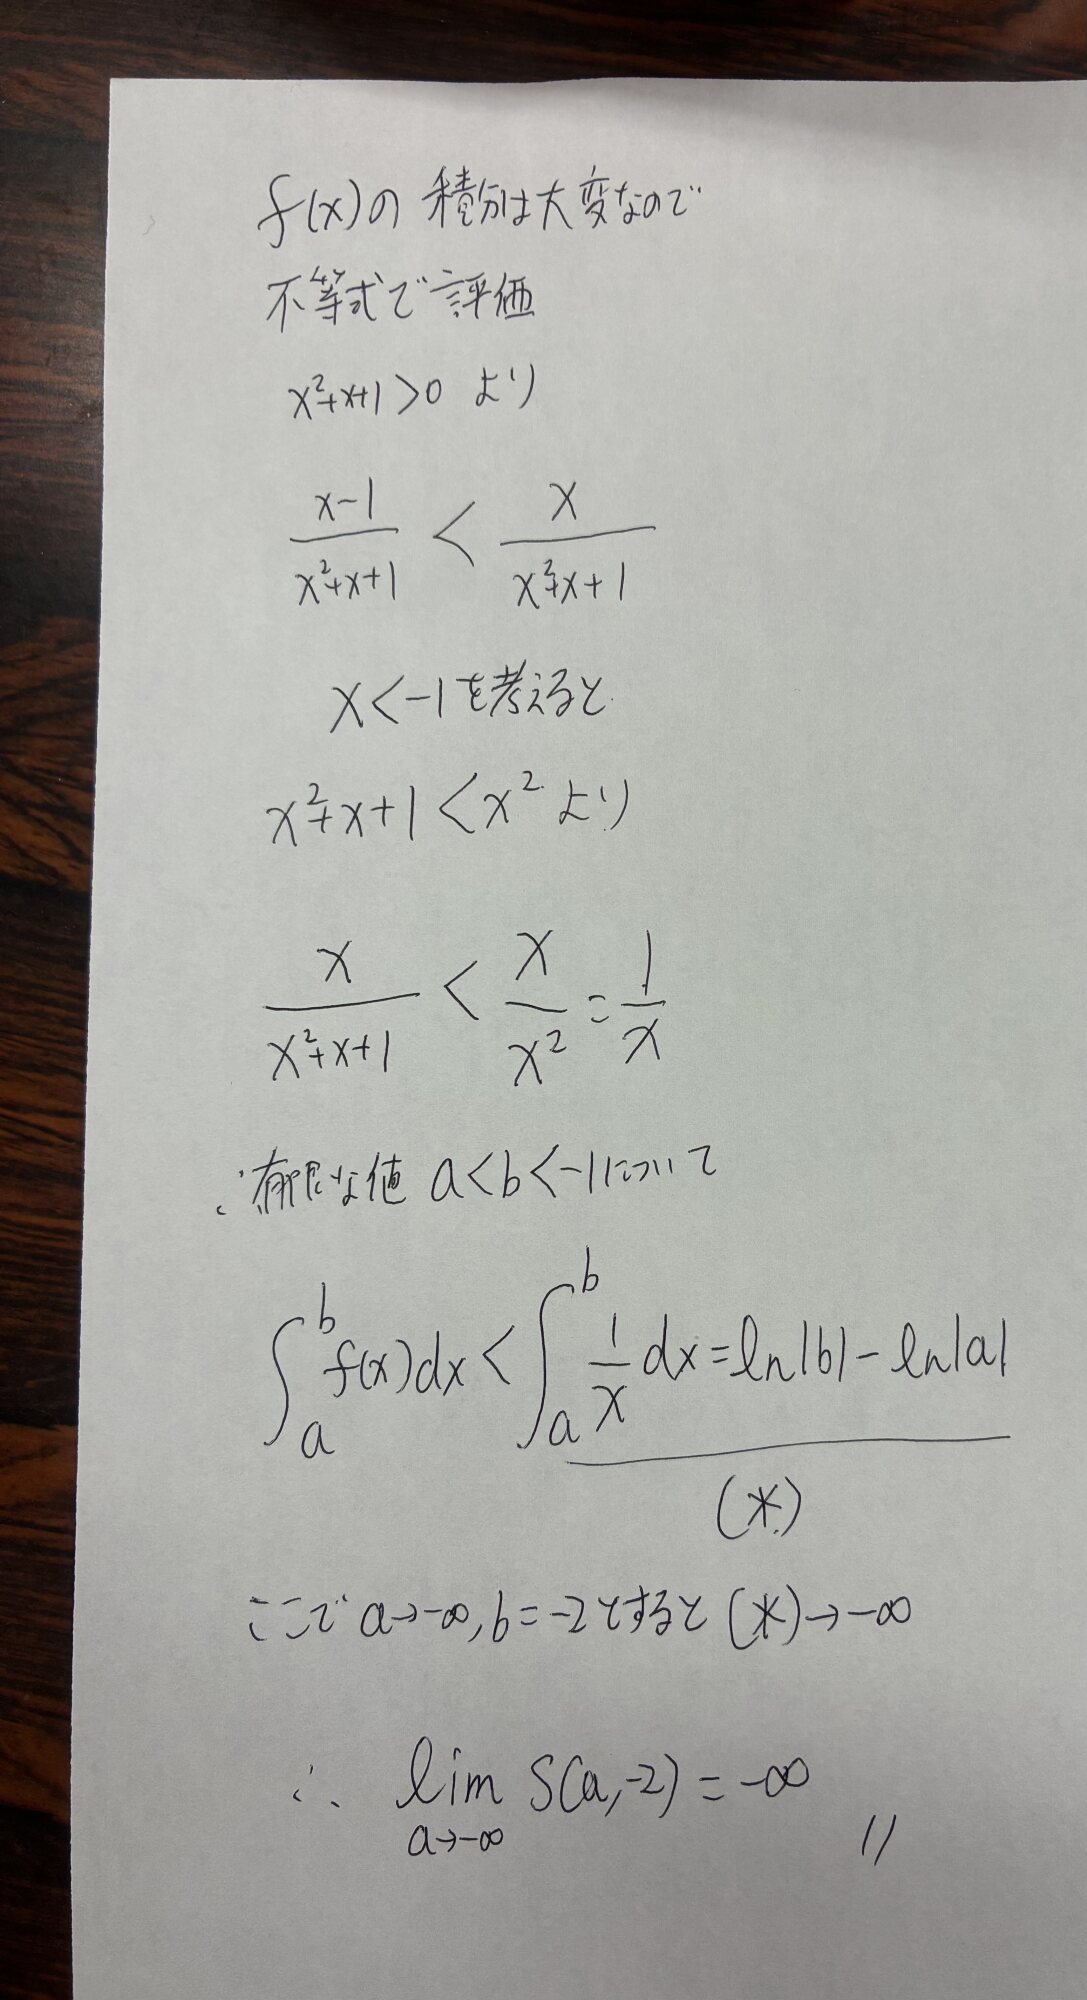 f(x)の積分は大変なので
不等式で評価
x²+x+1>0 より
(x-1)/(x²+x+1) < x/(x²+x+1)
x<-1を考えると
x²+x+1<x² より
x/(x²+x+1) < x/x² = 1/x
∴有限な値 a<b<-1について
∫_a^b f(x)dx < ∫_a^b 1/x dx = ln|b| - ln|a|
(*)
ここで a→-∞, b=-2とすると (*)→-∞
∴ lim_{a→-∞} S(a,-2) = -∞ //